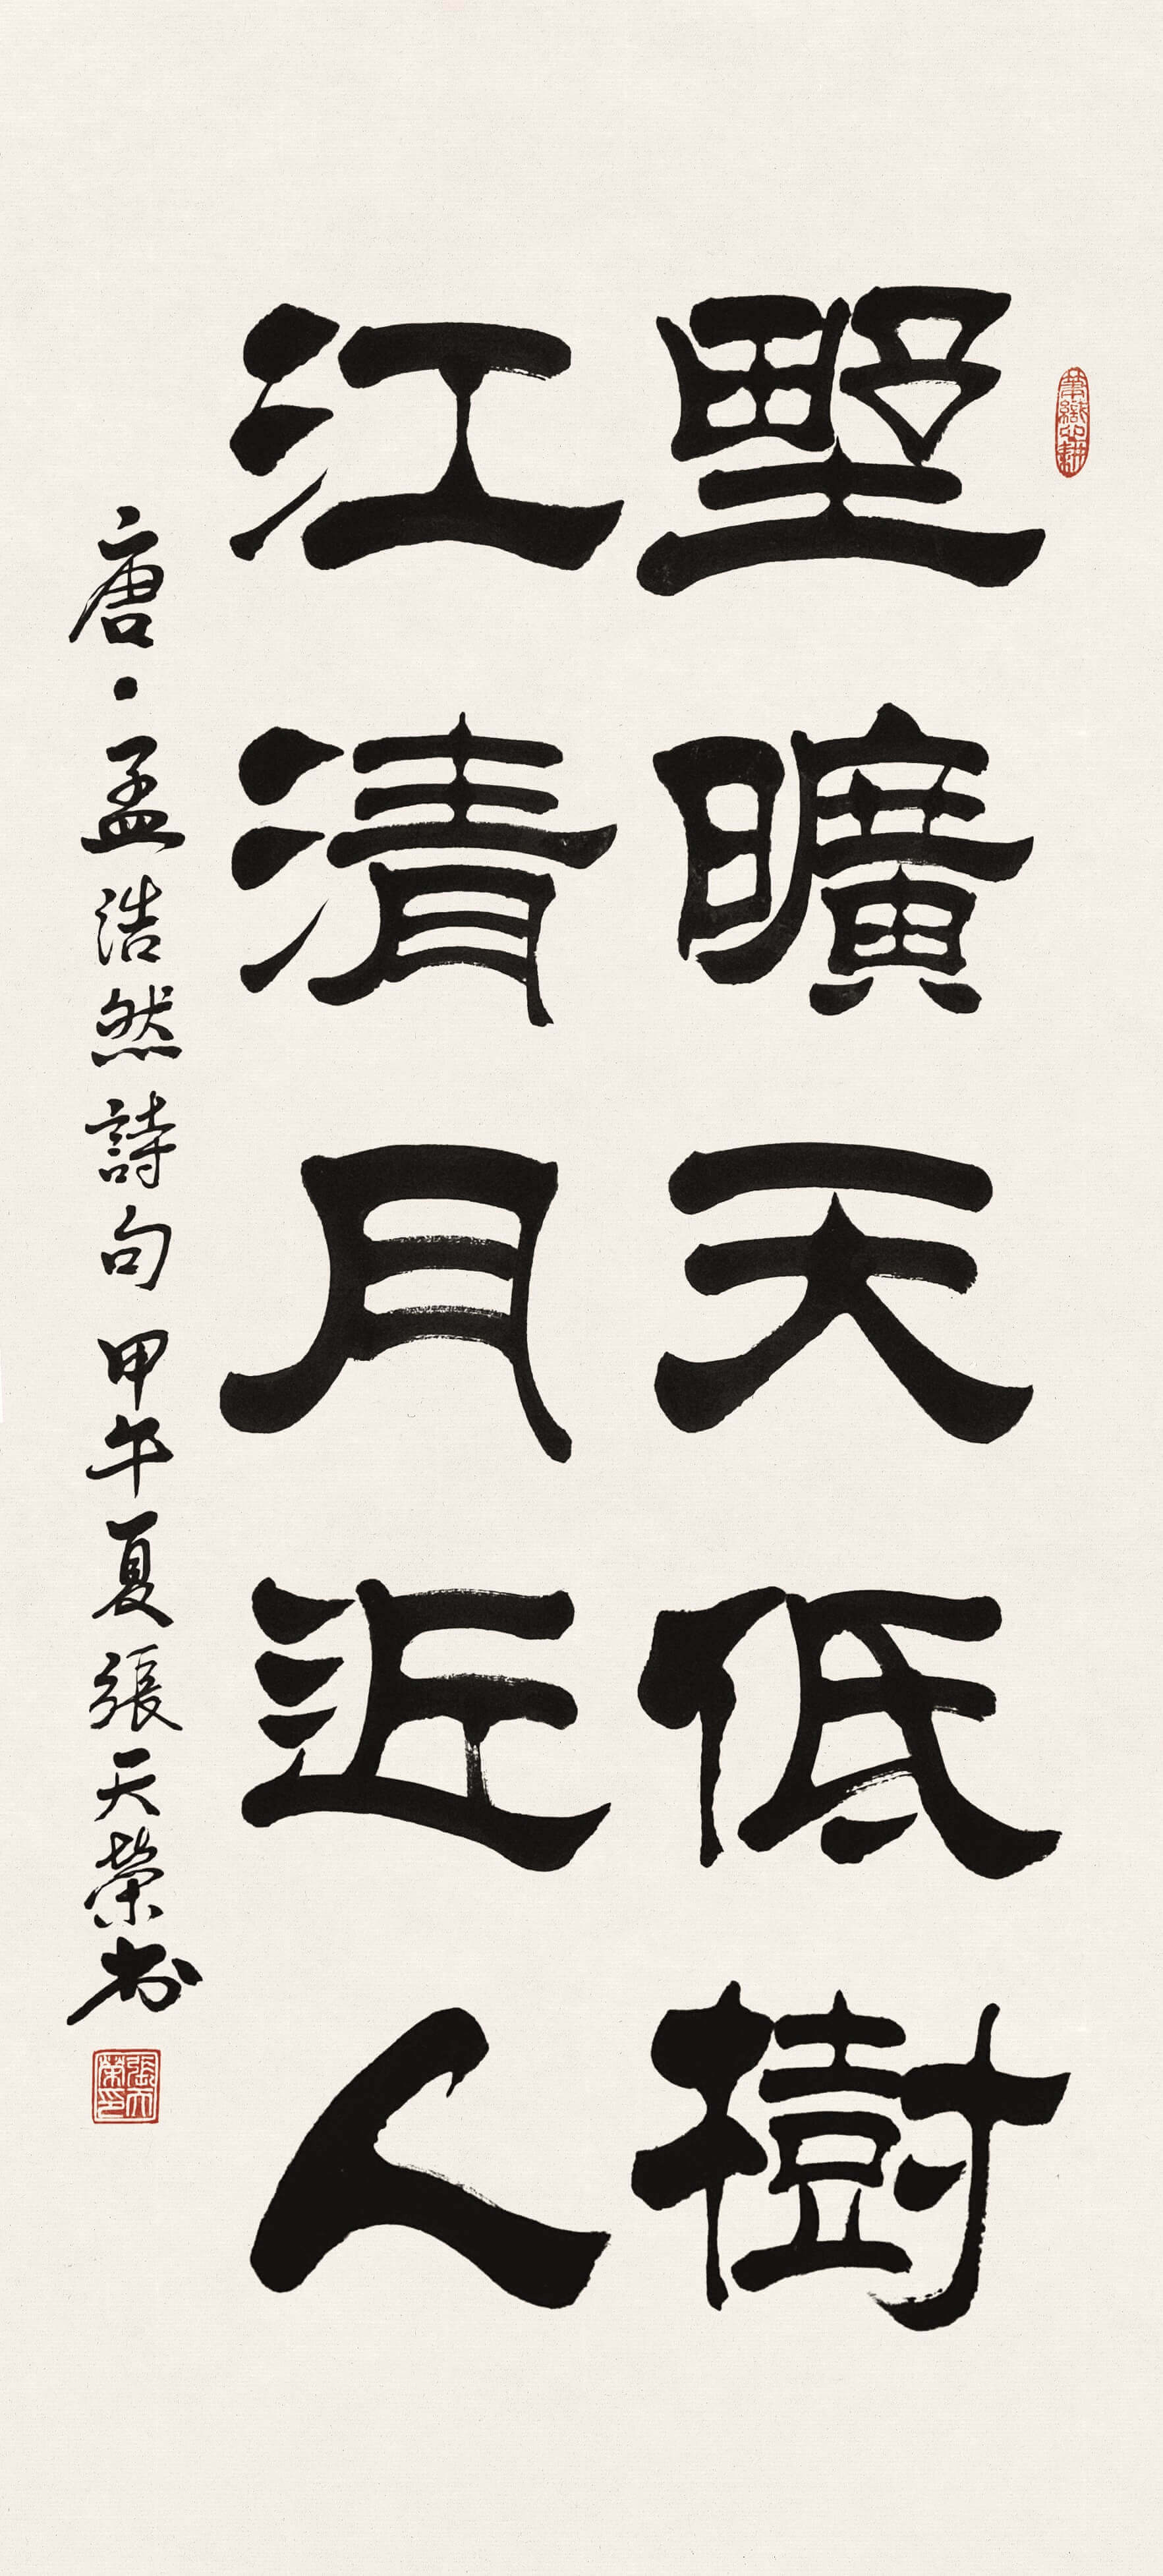 野曠天低樹
江清月近人
唐·孟浩然詩句 甲午夏 張天榮书
張天榮印